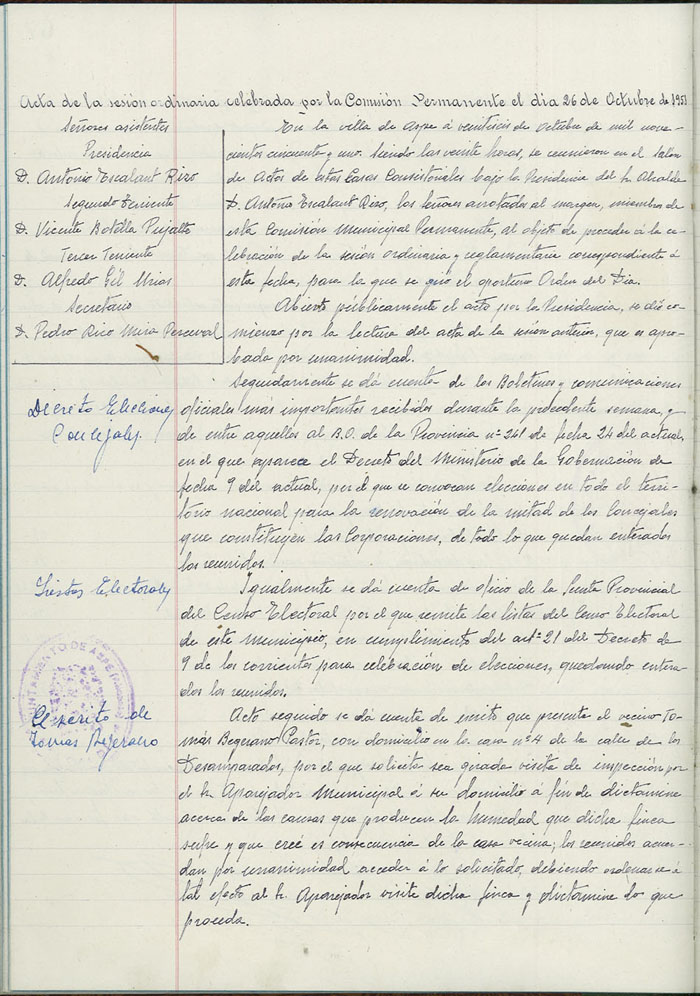 Acta de la sesión ordinaria celebrada por la Comisión Permanente el dia 26 de Octubre de 1951
Señores asistentes
Presidencia
D. Antonio Escalant Rizo
Segundo Teniente
D. Vicente Botella Pujalte
Tercer Teniente
D. Alfredo Gil Urios
Secretario
D. Pedro Rico Mira Perceval
En la villa de Aspe á veintiseis de Octubre de mil nove-
cientos cincuenta y uno. Siendo las veinte horas, se reunieron en el salon
de Actos de estas Casas Consistoriales bajo la Presidencia del Sr. Alcalde
D. Antonio Escalant Rizo, los señores anotados al margen, miembros de
esta Comisión Municipal Permanente, al objeto de proceder á la ce-
lebración de la sesión ordinaria y reglamentaria correspondiente á
esta fecha, para la que se giró el oportuno Orden del Dia.
Abierto públicamente el acto por la Presidencia, se dió co-
mienzo por la lectura del acta de la sesion anterior, que es apro-
bada por unanimidad.
Decreto Elecciones
Concejales.
Seguidamente se dá cuenta de los Boletines y comunicaciones
oficiales más importantes recibidos durante la precedente semana, y
de entre aquellos al B.O. de la Provincia nº 241 de fecha 24 del actual,
en el que aparece el Decreto del Ministerio de la Gobernación de
fecha 9 del actual, por el que se convocan elecciones en todo el terri-
tório nacional para la renovación de la mitad de los Concejales
que constituyen las Corporaciones, de todo lo que quedan enterados
los reunidos.
Listas Electorales
Igualmente se dá cuenta de oficio de la Junta Provincial
del Censo Electoral por el que remite las listas del Censo Electoral
de este Municipio, en cumplimiento del artº 21 del Decreto de
9 de los corrientes para celebración de elecciones, quedando entera-
dos los reunidos.
AYUNTAMIENTO DE ASPE
Escrito de
Tomas Bejerano
Acto seguido se dá cuenta de escrito que presenta el vecino To-
más Begerano Castor, con domicilio en la casa nº 4 de la calle de los
Desamparados, por el que solicita sea girada visita de inspección por
el Sr. Aparejador Municipal á su domicilio a fin de dictamine
acerca de las causas que producen la humedad que dicha finca
sufre y que creé es consecuencia de la casa vecina; los reunidos acuer-
dan por unanimidad acceder á lo solicitado, debiendo ordenarse á
tal efecto al Sr. Aparejador visite dicha finca y dictamine lo que
proceda.